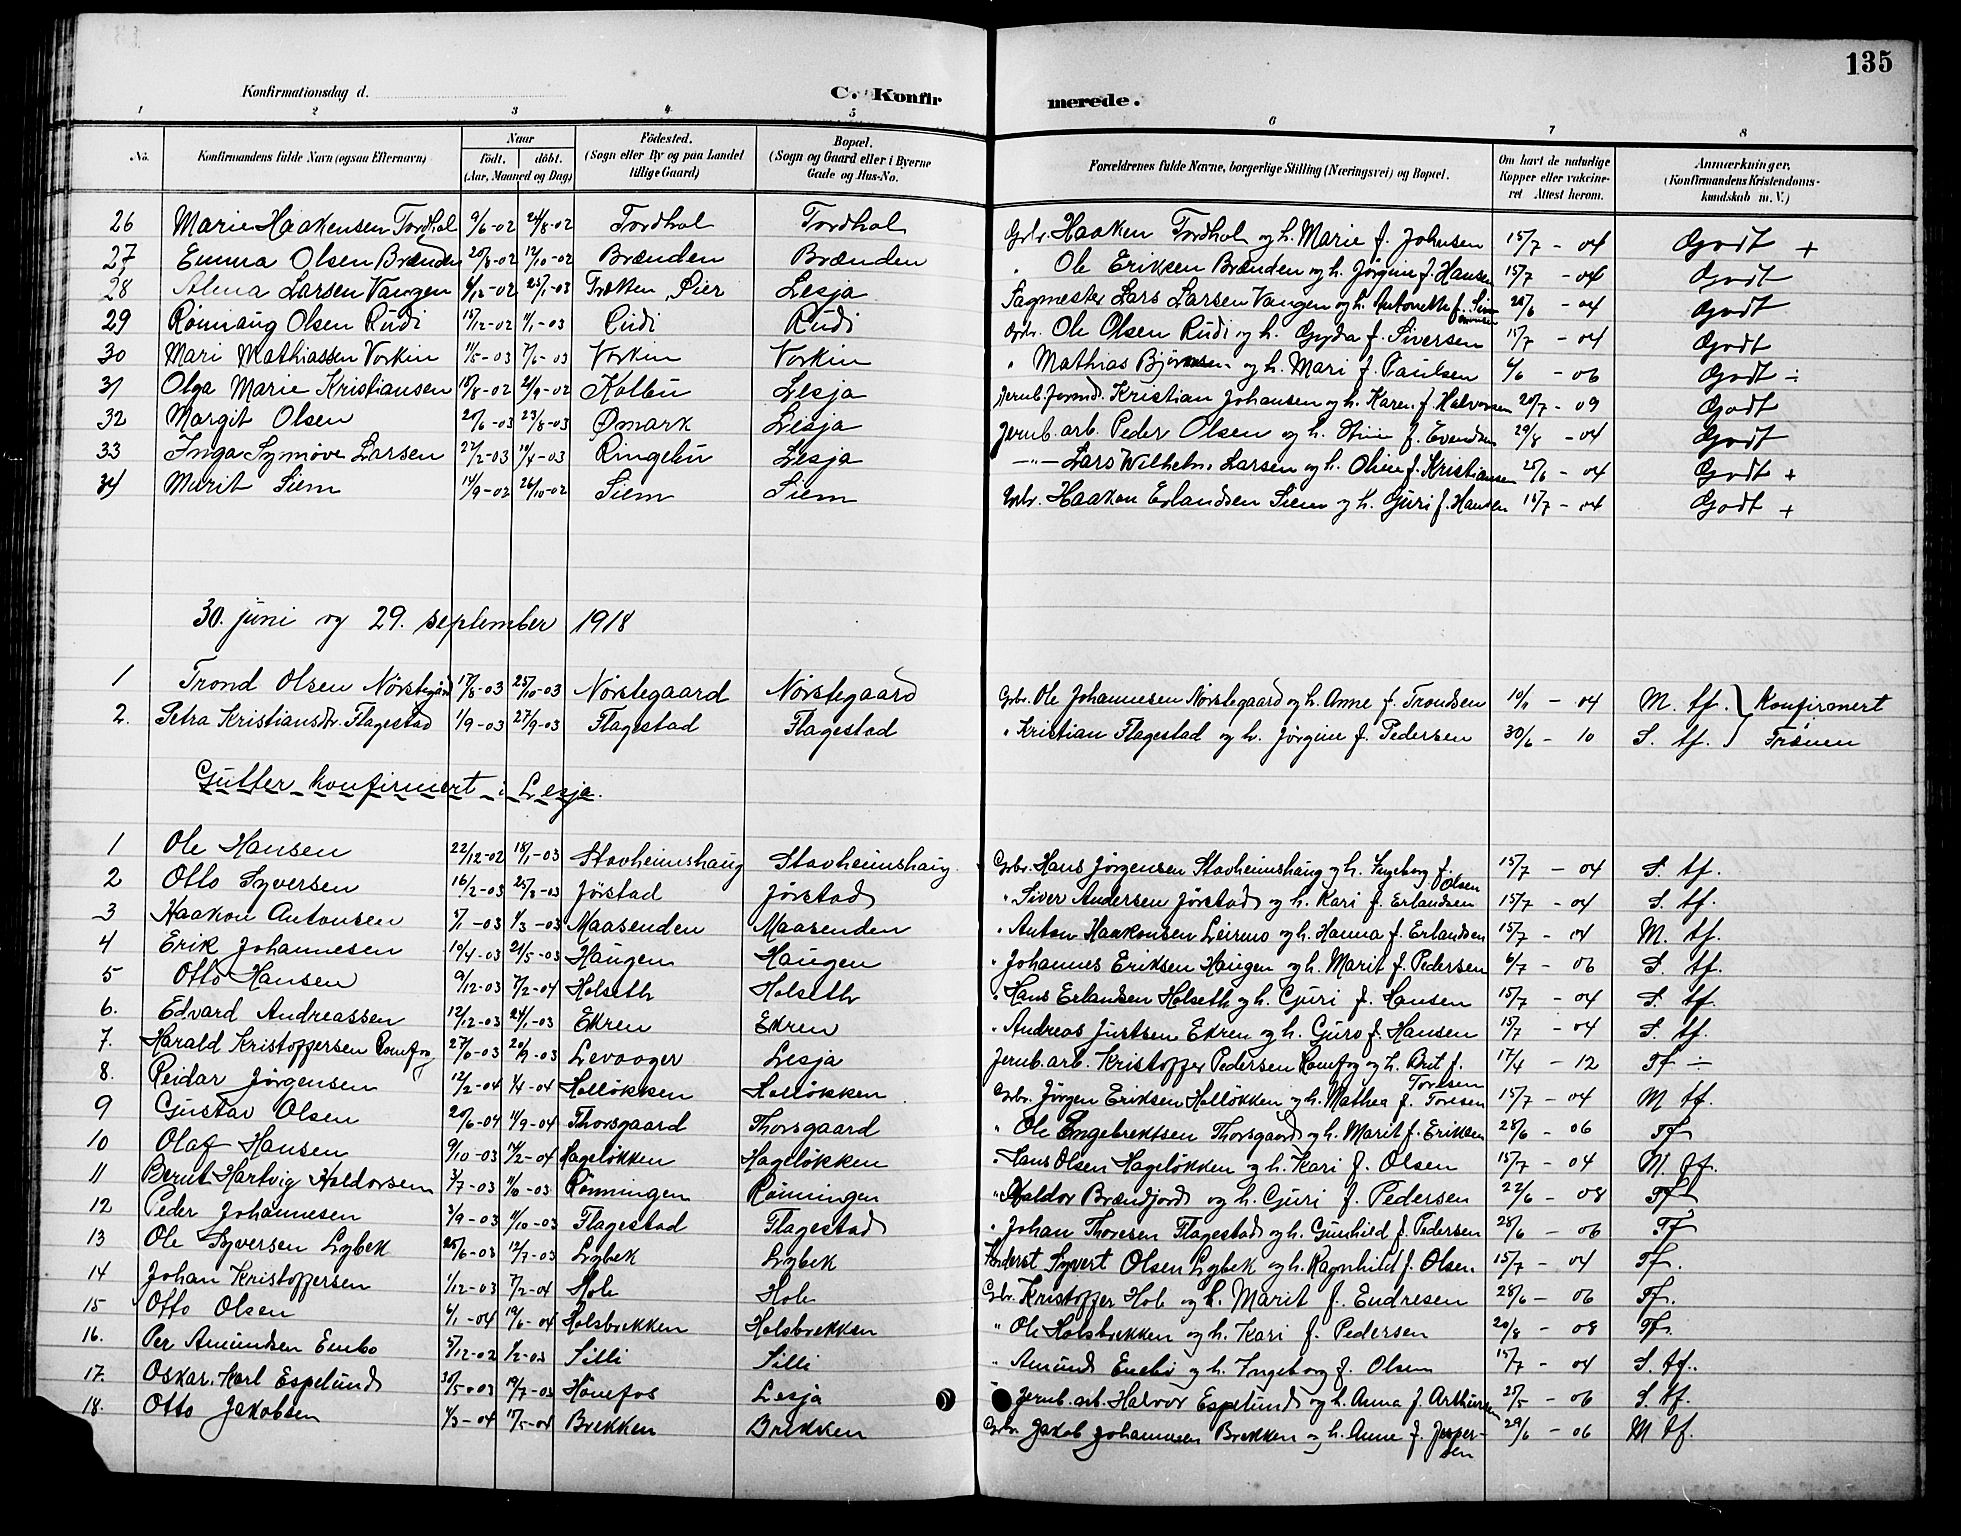 135
Konfirmationsdag d.
C. Konfirmerede.
1 2 3 4 5 6 7 8
No. Konfirmandens fulde Navn (ogsaa Efternavn) Naar født. døbt. (Aar, Maaned og Dag) Fødested. (Sogn eller By og paa Landet tillige Gaard) Bopæl. (Sogn og Gaard eller i Byerne Gade og Hus-No. Forældrenes fulde Navne, borgerlige Stilling (Næringsvei) og Bopæl. Om havt de naturlige Kopper eller vakcineret Attest herom. Anmærkninger, (Konfirmandens Kristendomskundskab m. V.)
26 Marie Haakensen Tordhol 9/6-02 24/8-02 Tordhol Tordhol Gbr. Haaken Tordhol og h. Marie f. Johnsen 15/7 - 04 Godt +
27 Emma Olsen Brænden 20/8-02 12/10-02 Brænden Brænden " Ole Eriksen Brænden og h. Jørgine f. Hansen 15/7 - 04 Godt
28 Alma Larsen Vangen 25/1-03 Lesja Sagmester Lars Larsen Vangen og h. Antonette f. 28/6 - 04 Godt
29 Rønnaug Olsen Rudi 15/12-02 1/1-03 Rudi Rudi Gbr. Ole Olsen Rudi og h. Gyda f. Siversen 15/7 - 04 Godt
30 Mari Mathiassen Vorkin 11/5-03 7/6-03 Vorkin Vorkin " Mathias Bjørnsen og h. Mari f. Paulsen 4/6 - 06 Godt ÷
31 Olga Marie Kristiansen 15/8-02 21/9-02 Kolbu Lesja Jernb. formd. Kristian Johansen og h. Karen f. Halvorsen 20/7 - 09 Godt
32 Margit Olsen 20/6-03 23/8-03 Ømark Lesja Jernb. arb. Peder Olsen og h. Stine f. Evendsen 29/8 - 04 Godt
33 Inga Synnøve Larsen 22/2-03 19/4-03 Ringebu Lesja —"— Lars Wilhelm Larsen og h. Oline f. Kristiansen 28/6 - 04 Godt +
34 Marit Siem 14/9-02 26/10-02 Siem Siem Gbr. Haakon Erlandsen Siem og h. Guri f. Hansen 15/7 - 04 Godt +
30. juni og 29. september 1918
1 Trond Olsen Nørstegård 17/8-03 25/10-03 Nørstegaard Nørstegaard Gbr. Ole Johannesen Nørstegaard og h. Anne f. Trondsen 10/1 - 04 M. tf. } Konfirmert
2. Petra Kristiansdr. Flagestad 1/9-03 27/9-03 Flagestad Flagestad " Kristian Flagestad og h. Jørgine f. Pedersen 30/6 - 10 S. tf. } Trønen
Gutter konfirmert i Lesja.
1 Ole Hansen 22/12-02 18/1-03 Stavheimshaug Stavheimshaug Gbr. Hans Jørgensen Stavheimshaug og h. Ingeborg f. Olsen 15/7 - 04 S. tf.
2 Otto Syversen 16/2-03 25/3-03 Jørstad Jørstad " Siver Andersen Jørstad og h. Kari f. Erlandsen 15/7 - 04 S. tf.
3 Haakon Antonsen 1/1-03 1/3-03 Maasenden Maasenden " Anton Haakonsen Leirmo og h. Hanna f. Erlandsen 15/7 - 04 M. tf.
4 Erik Johannesen 19/4-03 21/5-03 Haugen Haugen " Johannes Eriksen Haugen og h. Marit f. Pedersen 6/7 - 06 S. tf.
5 Otto Hansen 9/12-03 7/2-04 Holseth Holseth " Hans Erlandsen Holseth og h. Guri f. Hansen 15/7 - 04 S. tf.
6. Edvard Andreassen 12/12-03 24/1-03 Ekren Ekren " Andreas Justsen Ekren og h. Guro f. Hansen 15/7 - 04 S. tf.
7. Harald Kristoffersen Romfog 20/9-03 Levanger Lesja Jernb. arb. Kristoffer Pedersen Romfog og h. Brit f. Toresen 17/4 - 12 Tf ÷
8. Reidar Jørgensen 12/2-04 1/4-04 Holløkken Holløkken Gbr. Jørgen Eriksen Holløkken og h. Mathea f. Toresen 15/7 - 04 M tf.
9 Gustav Olsen 20/6-04 11/9-04 Thorsgaard Thorsgaard " Ole Engebrektsen Thorsgaard og h. Marit f. Eriksen 28/6 - 06 Tf
10 Olaf Hansen 9/10-03 14/2-04 Hageløkken Hageløkken " Hans Olsen Hageløkken og h. Kari f. Olsen 15/7 - 04 M. tf.
11 Bernt Hartvig Haldorsen 3/7-03 Rønningen Rønningen " Haldor Brændjord og h. Guri f. Pedersen 22/6 - 08 Tf
12 Peder Johannesen 3/9-03 11/10-03 Flagestad Flagestad " Johan Thoresen Flagestad og h. Gunhild f. Pedersen 28/6 - 06 Tf
13 Ole Syversen Lybek 25/6-03 12/7-03 Lybek Lybek Syvert Olsen Lybek og h. Ragnhild f. Olsen 15/7 - 04 Tf.
14 Johan Kristoffersen 1/12-03 7/2-04 Hole Hole Gbr. Kristoffer Hole og h. Marit f. Endresen 28/6 - 06 Tf.
15 Otto Olsen 6/1-04 19/6-04 Holsbrekken Holsbrekken " Ole Holsbrekken og h. Kari f. Pedersen 20/8 - 08 Tf.
16. Per Amundsen Enebo 5/12-02 1/2-03 Silli Silli " Amund Enebo og h. Ingeborg f. Olsen 15/7 - 04 S. tf.
17. Oskar Karl Espelund 30/5-03 19/7-03 Hønefos Lesja " Jernb. arb. Halvor Espelund og h. Anna f. Arthursen 27/5 - 06 S. tf.
18. Otto Jakobsen 4/3-04 17/5-04 Brekken Brekken Gbr. Jakob Johannesen Brekken og h. Anne f. Jespersen 29/6 - 06 M tf.